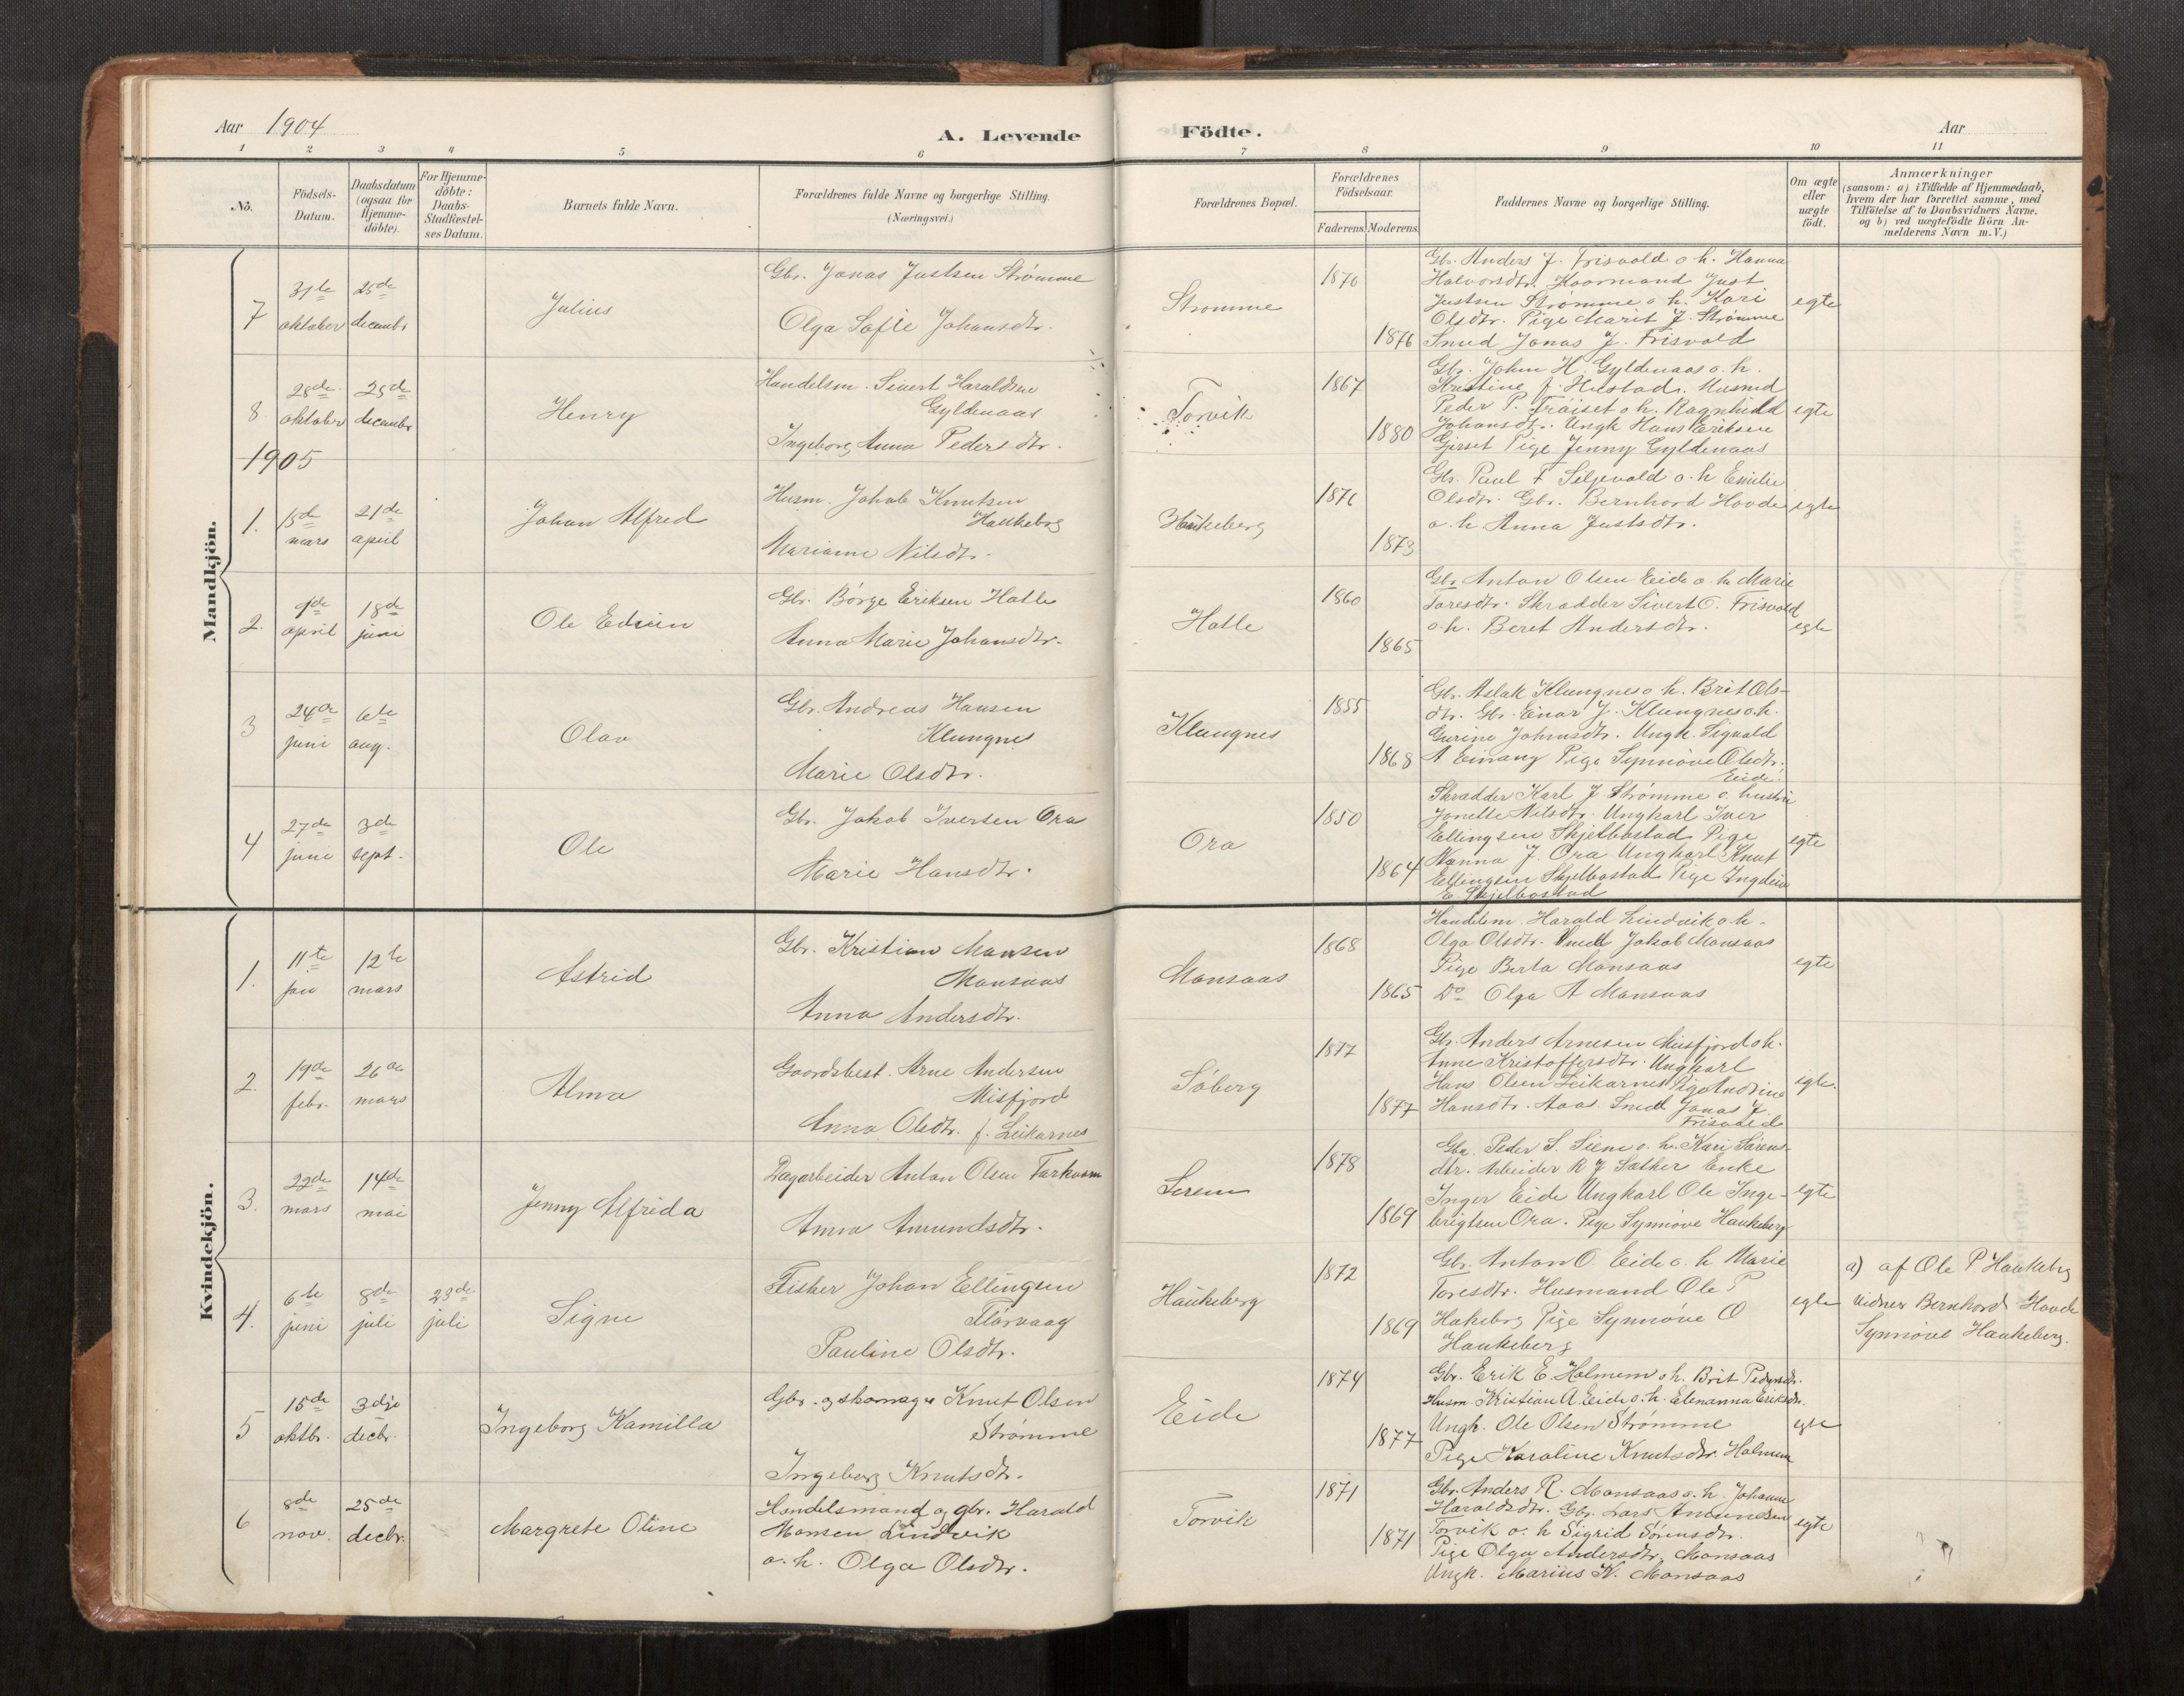 Aar 1904
A. Levende Födte.
Aar
1 2 3 4 5 6 7 8 9 10 11
No.
Födsels-Datum.
Daabsdatum (ogsaa for Hjemme-döbte).
For Hjemme-döbte: Daabs-Stadfæstel-ses Datum.
Barnets fulde Navn.
Forældrenes fulde Navne og borgerlige Stilling.
(Næringsvei.)
Forældrenes Bopæl.
Forældrenes Födselsaar.
Faderens. Moderens.
Faddernes Navne og borgerlige Stilling.
Om ægte eller uægte födt.
Anmærkninger
(saasom: a) i Tilfælde af Hjemmedaab,
hvem der har forrettet samme, med
Tilföielse af to Daabsvidners Navne.
og b) ved uægtefödte Börn An-
melderens Navn m.V.)
Mandkjön.
7
31te oktober
25de decembr
Julius
Gbr. Jonas Justsen Strømme
Olga Sofie Johansdtr.
Strømme
1870
1876
Gbr. Anders J. Frisvold o. h. Hanna
Halvorsdtr. Kaarmand Just
Justsen Strømme o. h. Kari
Olsdtr. Pige Marit J. Strømme
Smed Jonas J. Frisvold
egte
8.
28de oktober
25de decembr
Henry
Handelsm. Sivert Haraldsen
Gyldenaas
Ingeborg Anna Pedersdtr.
Torvik
1867
1880
Gbr. John H. Gyldenaas o. h.
Kristine f. Hustad. Husmd
Peder P. Trøiset o. h. Ragnhild
Johansdtr. Ungk Hans Eriksen
Gjerset Pige Jenny Gyldenaas
egte
1905
1.
15de mars
21de april
Johan Alfred
Husm. Jakob Knutsen
Haukeberg
Marianne Nilsdtr.
Haukeberg
1876
1873
Gbr. Paul F Siljevold o. h Emilie
Olsdtr. Gbr. Bernhard Hovde
o. h. Anna Justsdtr.
egte
2.
9de april
18de juni
Ole Edvin
Gbr. Börge Eriksen Hatle
Anna Marie Johansdtr.
Hatle
1860
1865
Gbr. Anton Olsen Eide o. h. Marie
Toresdtr. Skrædder Sivert O. Frisvold
o. h. Beret Andersdtr.
egte
3
24de juni
6te aug.
Olav
Gbr. Andreas Hansen
Klungnes
Marie Olsdtr.
Klungnes
1855
1868
Gbr. Aslak Klungnes o. h. Brit Ols-
dtr. Gbr. Einar J. Klungnes o. h.
Gurine Johnsdtr. Ungk. Sigvald
A Einang Pige Synnöve Olsdtr.
Eide.
4
27de juni
3de sept.
Ole
Gbr. Jakob Iversen Ora
Marie Hansdtr.
Ora
1850
1864
Skrædder Karl J Strømme o. hustru
Jonette Nilsdtr. Ungkarl Iver
Ellingsen Skjelbostad Pige
Hanna J. Ora Ungkarl Knut
Ellingsen Skjelbostad Pige
E. Skjelbostad
egte
Kvindekjön.
1.
11te jan
12te mars
Astrid
Gbr. Kristian Monsen
Monsaas
Anna Andersdtr.
Monsaas
1868
1865
Handelsm. Harald Lindvik o h.
Olga Olsdtr. Smed Jakob Monsaas
Pige Berta Monsaas
Do Olga A Monsaas
egte
2.
19de febr.
26de mars
Alma
Gaardsbest. Arne Andersen
Misfjord
Anna Olsdtr. f. Leikarnes
Söberg
1877
1877
Gbr. Anders Arnesen Misfjord o h.
Anne Kristoffersdtr. Ungkarl
Hans Olsen Leikarnes Pige Andrine
Hansdtr. Aaas Smed Jonas J.
Frisvold
egte.
3.
22de mars
14de mai
Jenny Alfrida
Dagarbeider Anton Olsen Farkvam
Anna Amundsdtr.
Serem
1878
1869
Gbr. Peder S. Siem o. h. Kari Sörens-
dtr. Arbeider R J Sæther Enke
Inger Eide Ungkarl Ole Inge-
brigtsen Ora. Pige Synnöve Haukeberg
egte
4.
6te juni
8de juli
23de juli
Signe
Fisker Johan Ellingsen
Flörvaag
Pauline Olsdtr.
Haukeberg
1872
1869
Gbr. Anton O. Eide o. h Marie
Toresdtr. Husmand Ole P
Hakeberg Pige Synnöve O
Haukeberg
egte
a) af Ole P. Haukeberg
Vidner Bernhard Hovde
Synnöve Haukeberg.
5
15de oktbr.
3dje decbr.
Ingeborg Kamilla
Gbr. og skomager Knut Olsen
Strømme
Ingeborg Knutsdtr.
Eide
1874
1877
Gbr. Erik E. Holmem o. h. Brit Pedersdtr.
Husm. Kristian A. Eide o. h. Elenanna Eriksdtr.
Ungk. Ole Olsen Strømme
Pige Karoline Knutsdtr. Holmem
egte
6
8de nov.
25de decbr.
Margrete Oline
Handelsmand og gbr. Harald
Monsen Lindvik
o. h. Olga Olsdtr.
Torvik
1871
1871
Gbr. Anders R. Monsaas o. h. Johanne
Haraldsdtr. Gbr. Lars Amundsen
Torvik o. h Sigrid Sörensdtr.
Pige Olga Andersdtr. Monsaas
Ungk. Marius K. Monsaas
egte